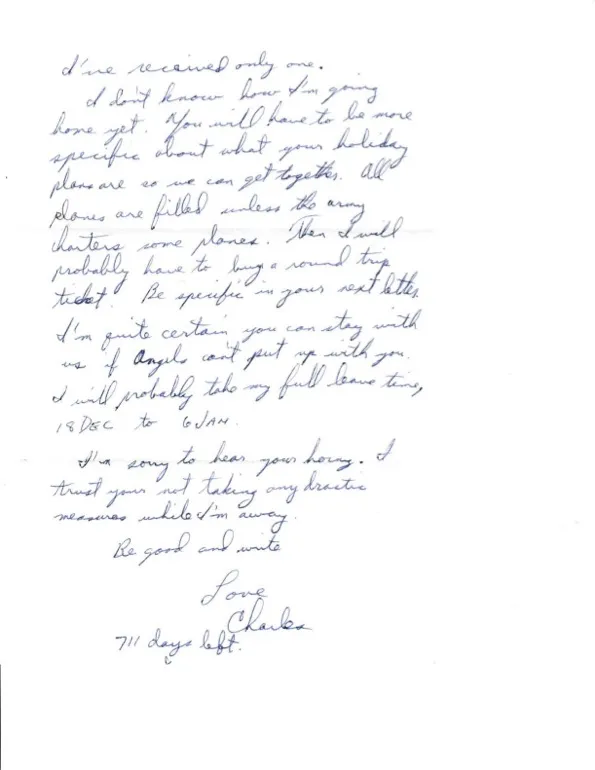 I've received only one.
I don't know how I'm going
home yet. You will have to be more
specific about what your holiday
plans are so we can get together. All
planes are filled unless the army
charters some planes. Then I will
probably have to buy a round trip
ticket. Be specific in your next letter.
I'm quite certain you can stay with
us if Angels can't put up with you.
I will probably take my full leave time,
18 DEC to 6 JAN.
I'm sorry to hear your horny. I
trust your not taking any drastic
measures while I'm away.
Be good and write
Love
Charles
711 days left.